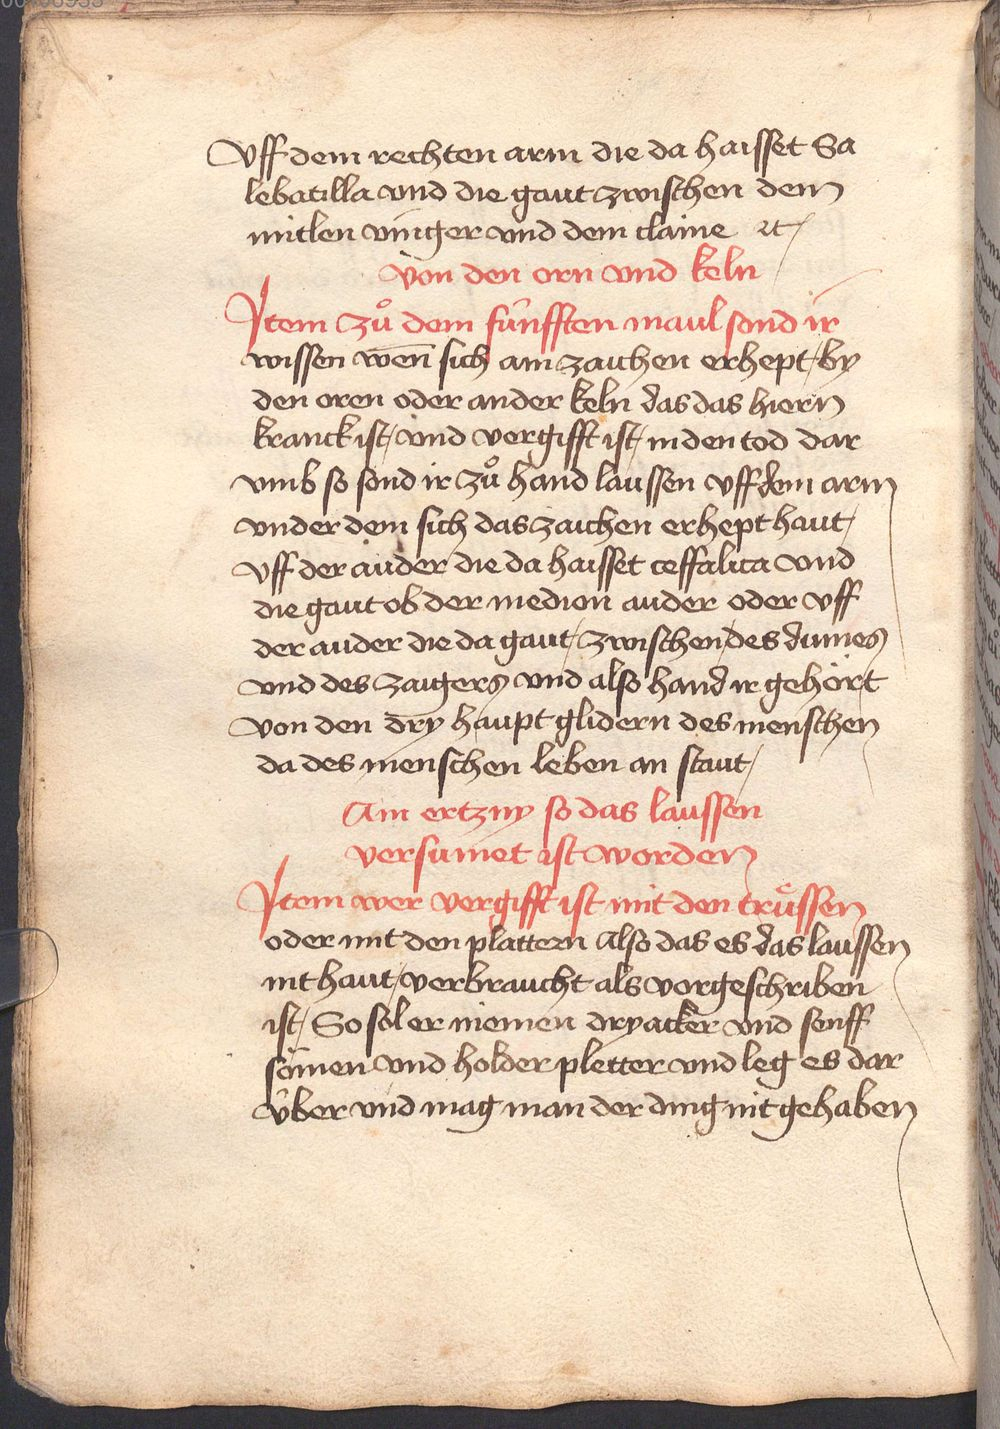 Vff dem rechten arm die da haisset Sa
lebatilla vnd die gaut zwischen dem
mitlen vinger vnd dem claine ꝛc
Von den orn vnd keln
Item zů dem fúnfften maul sond ir
wissen wen̄ sich ain zaichen erhept / by
den oren oder an der keln das das hiern
kranck ist / vnd vergifft ist / in den tod dar
vmb so sond ir zů hand laussen vff dem arm
vnder dem sich das zaichen erhept haut /
vff der auder die da haisset ceffalica vnd
die gaut ob der median auder oder vff
der auder die da gaut / zwischen des dumes
vnd des zaigers vnd also hand ir gehört
von den dry haupt glidern des menschen
da des menschen leben an staut /
Ain ertzny so das laussen
versumet ist worden
Item wer vergifft ist mit den trůssen
oder mit den plattern Also das es das laussen
nit haut / verbraucht als vorgeschriben
ist / So sol er niemen dryacker vnd senff
sömen vnd holder pletter vnd leg es dar
v̈ber vnd mag man der ding nit gehaben